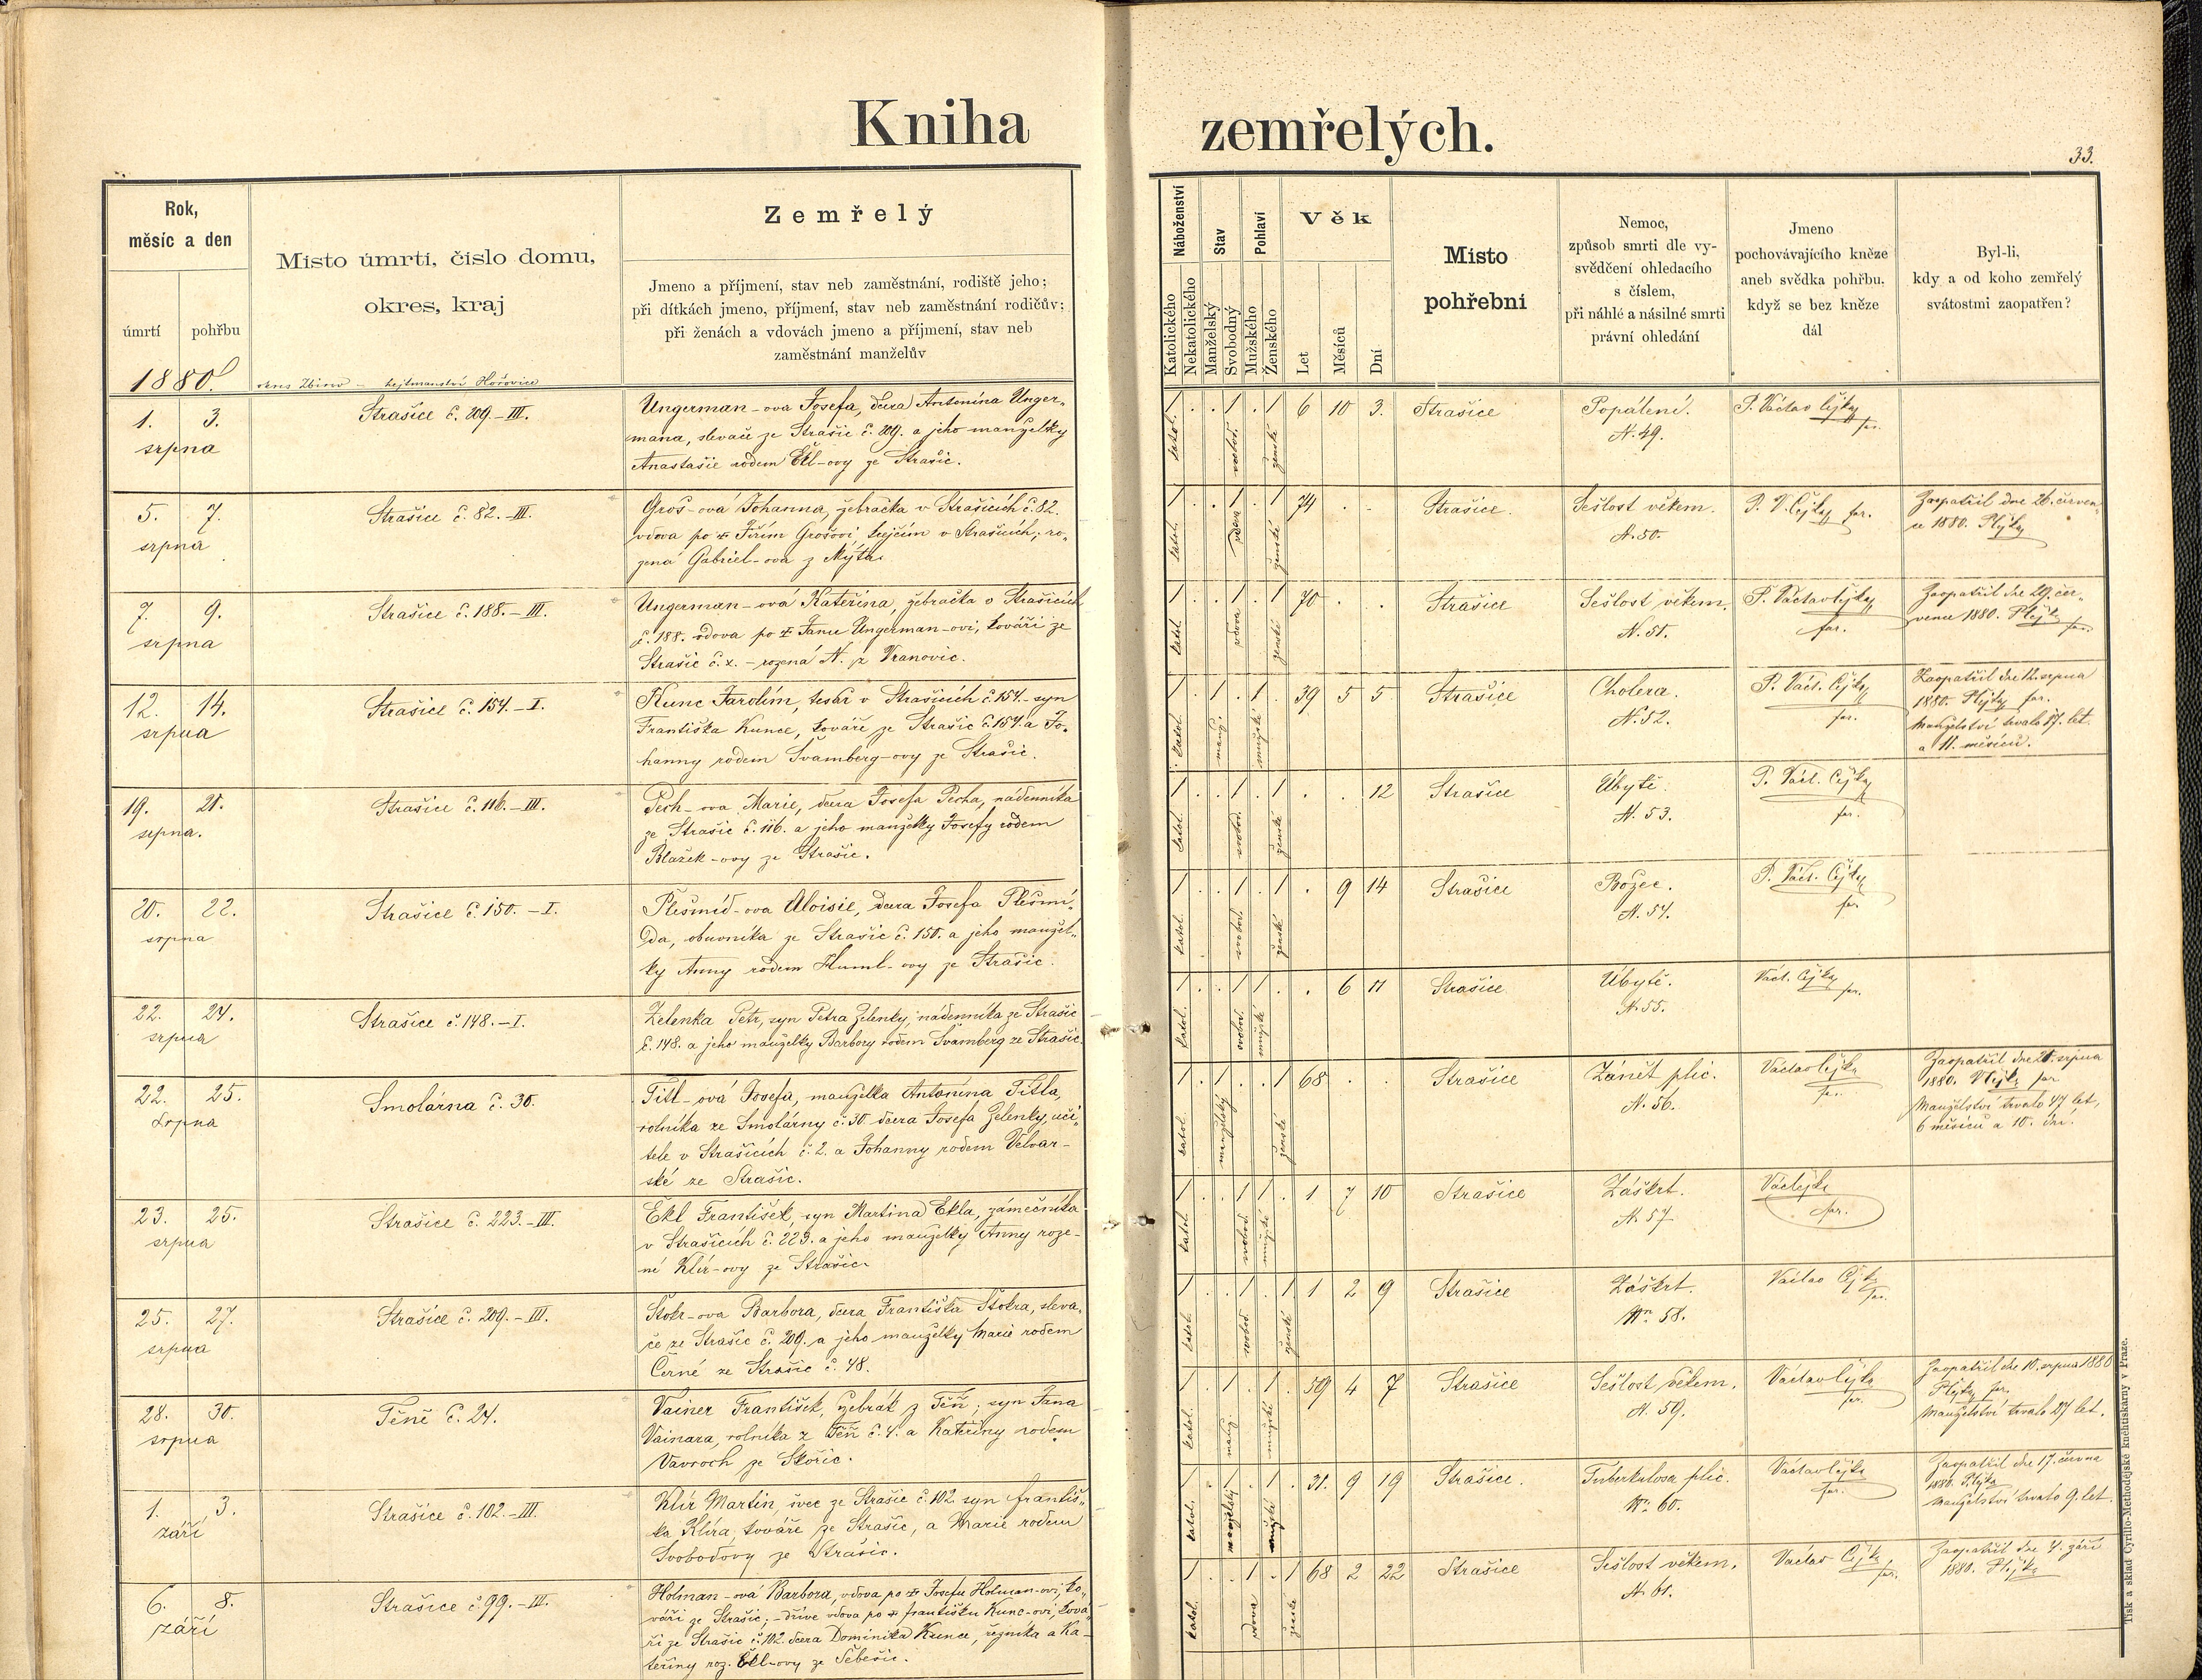 Kniha zemřelých.
33.
Rok,
měsíc a den
úmrtí pohřbu
1880.
Místo úmrtí, číslo domu,
okres, kraj
okres Zbirov – hejtmanství Hořovice
Zemřelý
Jmeno a příjmení, stav neb zaměstnání, rodiště jeho;
při dítkách jmeno, příjmení, stav neb zaměstnání rodičův;
při ženách a vdovách jmeno a příjmení, stav neb
zaměstnání manželův
Náboženství
Katolického
Nekatolického
Stav
Manželský
Svobodný
Pohlaví
Mužského
Ženského
Věk
Let
Měsíců
Dní
Místo
pohřební
Nemoc,
způsob smrti dle vy-
svědčení ohledacího
s číslem,
při náhlé a násilné smrti
právní ohledání
Jmeno
pochovávajícího kněze
aneb svědka pohřbu,
když se bez kněze
dál
Byl-li,
kdy a od koho zemřelý
svátostmi zaopatřen?
1. 3.
srpna
Strašice č. 209.–III.
Ungerman-ova Josefa, dcera Antonína Unger-
mana, slevače ze Strašic č. 209. a jeho manželky
Anastasie rodem Ekl-ovy ze Strašic.
katol. svobod. ženské
6 10 3.
Strašice
Popálení.
N. 49.
P. Václav Čejka
far.
5. 7.
srpna
Strašice č. 82.–III.
Groš-ová Johanna, žebračka v Strašicích č. 82.
vdova po † Jiřím Grošovi, krejčím v Strašicích; ro-
zená Gabriel-ova z Mýta.
katol. vdova ženské
74 . .
Strašice.
Sešlost věkem.
N. 50.
P. V. Čejka far.
Zaopatřil dne 26. červen-
ce 1880. P. Čejka
7. 9.
srpna
Strašice č. 188.–III.
Ungerman-ová Kateřina, žebračka v Strašicích
č. 188. vdova po † Janu Ungerman-ovi, kováři ze
Strašic č. x. – rozená N. z Vranovic.
katol. vdova ženské
70 . .
Strašice
Sešlost věkem.
N. 51.
P. Václav Čejka
far.
Zaopatřil dne 29. čer-
vence 1880. P. Čejka
far.
12. 14.
srpna
Strašice č. 154.–I.
Kunc Jarolím, tesař v Strašicích č. 154.–syn
Františka Kunce, kováře ze Strašic č. 154. a Jo-
hanny rodem Švamberg-ovy ze Strašic.
katol. manž. mužské
39 5 5
Strašice
Cholera.
N. 52.
P. Václ. Čejka
far.
Zaopatřil dne 12. srpna
1880. P. Čejka far.
Manželství trvalo 17. let
a 11. měsíců.
19. 21.
srpna.
Strašice č. 116.–III.
Pech-ova Marie, dcera Josefa Pecha, nádenníka
ze Strašic č. 116. a jeho manželky Josefy rodem
Blažek-ovy ze Strašic.
katol. svobod. ženské
. . 12
Strašice
Úbytě.
N. 53.
P. Václ. Čejka
far.
20. 22.
srpna
Strašice č. 150.–I.
Plešmíd-ova Aloisie, dcera Josefa Plešmí-
da, obuvníka ze Strašic č. 150. a jeho manžel-
ky Anny rodem Huml-ovy ze Strašic.
katol. svobod. ženské
. 9 14
Strašice
Božec.
N. 54.
P. Václ. Čejka
far.
22. 24.
srpna
Strašice č. 148.–I.
Zelenka Petr, syn Petra Zelenky, nádenníka ze Strašic
č. 148. a jeho manželky Barbory rodem Švamberg ze Strašic.
katol. svobod. mužské
. 6 11
Strašice
Úbytě.
N. 55.
Václ. Čejka
far.
22. 25.
srpna
Smolárna č. 30.
Titl-ová Josefa, manželka Antonína Titla,
rolníka ze Smolárny č. 30. dcera Josefa Zelenky, uči-
tele v Strašicích č. 2. a Johanny rodem Velvar-
ské ze Strašic.
katol. manželský ženské
68 . .
Strašice
Zánět plic.
N. 56.
Václav Čejka
far.
Zaopatřil dne 21. srpna
1880. V. Čejka far
Manželství trvalo 47 let,
6 měsíců a 10. dní.
23. 25.
srpna
Strašice č. 223.–III.
Ekl František, syn Martina Ekla, zámečníka
v Strašicích č. 223. a jeho manželky Anny roze-
né Klír-ovy ze Strašic.
katol. svobod. mužské
1 7 10
Strašice
Záškrt.
N. 57
Vác. Čejka
far.
25. 27.
srpna
Strašice č. 209.–III.
Štokr-ova Barbora, dcera Františka Štokra, sleva-
če ze Strašic č. 209. a jeho manželky Marie rodem
Černé ze Strašic č. 48.
katol. svobod. ženské
1 2 9
Strašice
Záškrt.
Nro. 58.
Václav Čejka
far.
28. 30.
srpna
Těně č. 24.
Vainer František, žebrák z Těň; syn Jana
Vainara, rolníka z Těň č. 4. a Kateřiny rodem
Vavroch ze Skořic.
katol. manž. mužské
59 4 7
Strašice
Sešlost věkem.
N. 59.
Václav Čejka
far.
Zaopatřil dne 10. srpna 1880
P. Čejka far.
Manželství trvalo 27 let.
1. 3.
září
Strašice č. 102.–III.
Klír Martin, švec ze Strašic č. 102. syn Františ-
ka Klíra, kováře ze Strašic, a Marie rodem
Svobodovy ze Strašic.
katol. manželský mužské
31. 9 19
Strašice.
Tuberkulosa plic.
Nro. 60.
Václav Čejka
far.
Zaopatřil dne 17. června
1880. P. Čejka
Manželství trvalo 9. let.
6. 8.
září
Strašice č. 99.–III.
Holman-ová Barbora, vdova po † Josefu Holman-ovi, ko-
váři ze Strašic; – dříve vdova po † Františku Kunc-ovi, ková-
ři ze Strašic č. 102. dcera Dominika Kunce, řezníka a Ka-
teřiny roz. Ekl-ovy ze Sebešic.
katol. vdova ženské
68 2 22
Strašice
Sešlost věkem.
N. 61.
Václav Čejka
far.
Zaopatřil dne 4. září
1880. P. Čejka
Tisk a sklad Cyrillo-Methodějské kněhtiskárny v Praze.